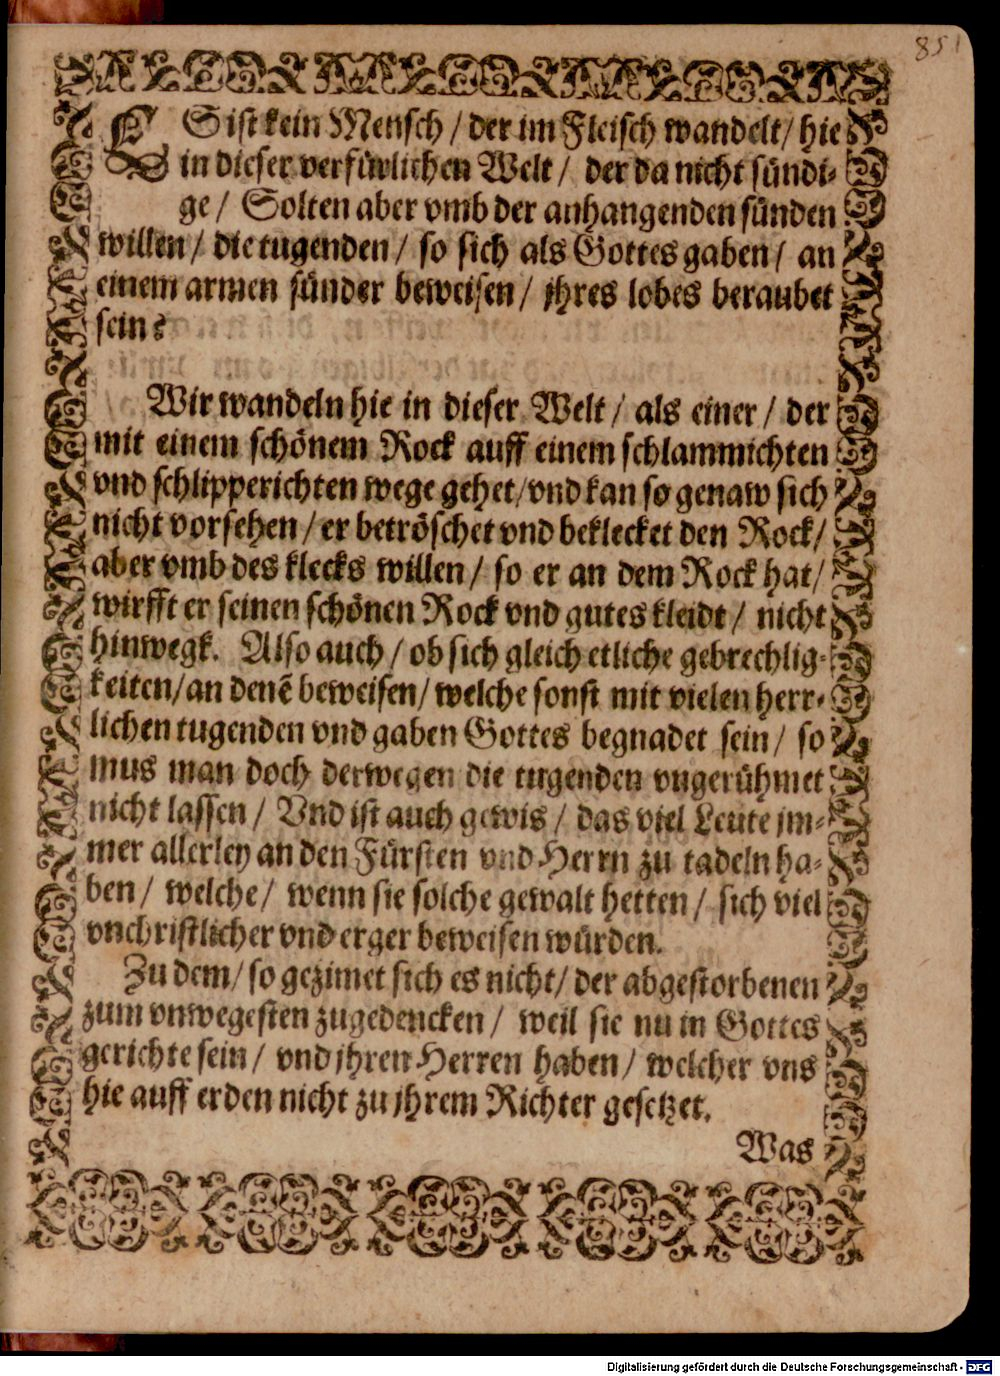 851
ES ist kein Mensch / der im Fleisch wandelt / hie
in dieser verfüwlichen Welt / der da nicht sündi-
ge / Solten aber vmb der anhangenden sünden
willen / die tugenden / so sich als Gottes gaben / an
einem armen sünder beweisen / jhres lobes beraubet
sein?
Wir wandeln hie in dieser Welt / als einer / der
mit einem schönem Rock auff einem schlammichten
vnd schlipperichten wege gehet / vnd kan so genaw sich
nicht vorsehen / er betröschet vnd beklecket den Rock /
aber vmb des klecks willen / so er an dem Rock hat /
wirfft er seinen schönen Rock vnd gutes kleidt / nicht
hinwegk. Also auch / ob sich gleich etliche gebrechlig-
keiten / an denē beweisen / welche sonst mit vielen herr-
lichen tugenden vnd gaben Gottes begnadet sein / so
mus man doch derwegen die tugenden vngerühmet
nicht lassen / Vnd ist auch gewis / das viel Leute jm-
mer allerley an den Fürsten vnd Herrn zu tadeln ha-
ben / welche / wenn sie solche gewalt hetten / sich viel
vnchristlicher vnd erger beweisen würden.
Zu dem / so gezimet sich es nicht / der abgestorbenen
zum vnwegesten zugedencken / weil sie nu in Gottes
gerichte sein / vnd jhren Herren haben / welcher vns
hie auff erden nicht zu jhrem Richter gesetzet.
Was
Digitalisierung gefördert durch die Deutsche Forschungsgemeinschaft - DFG